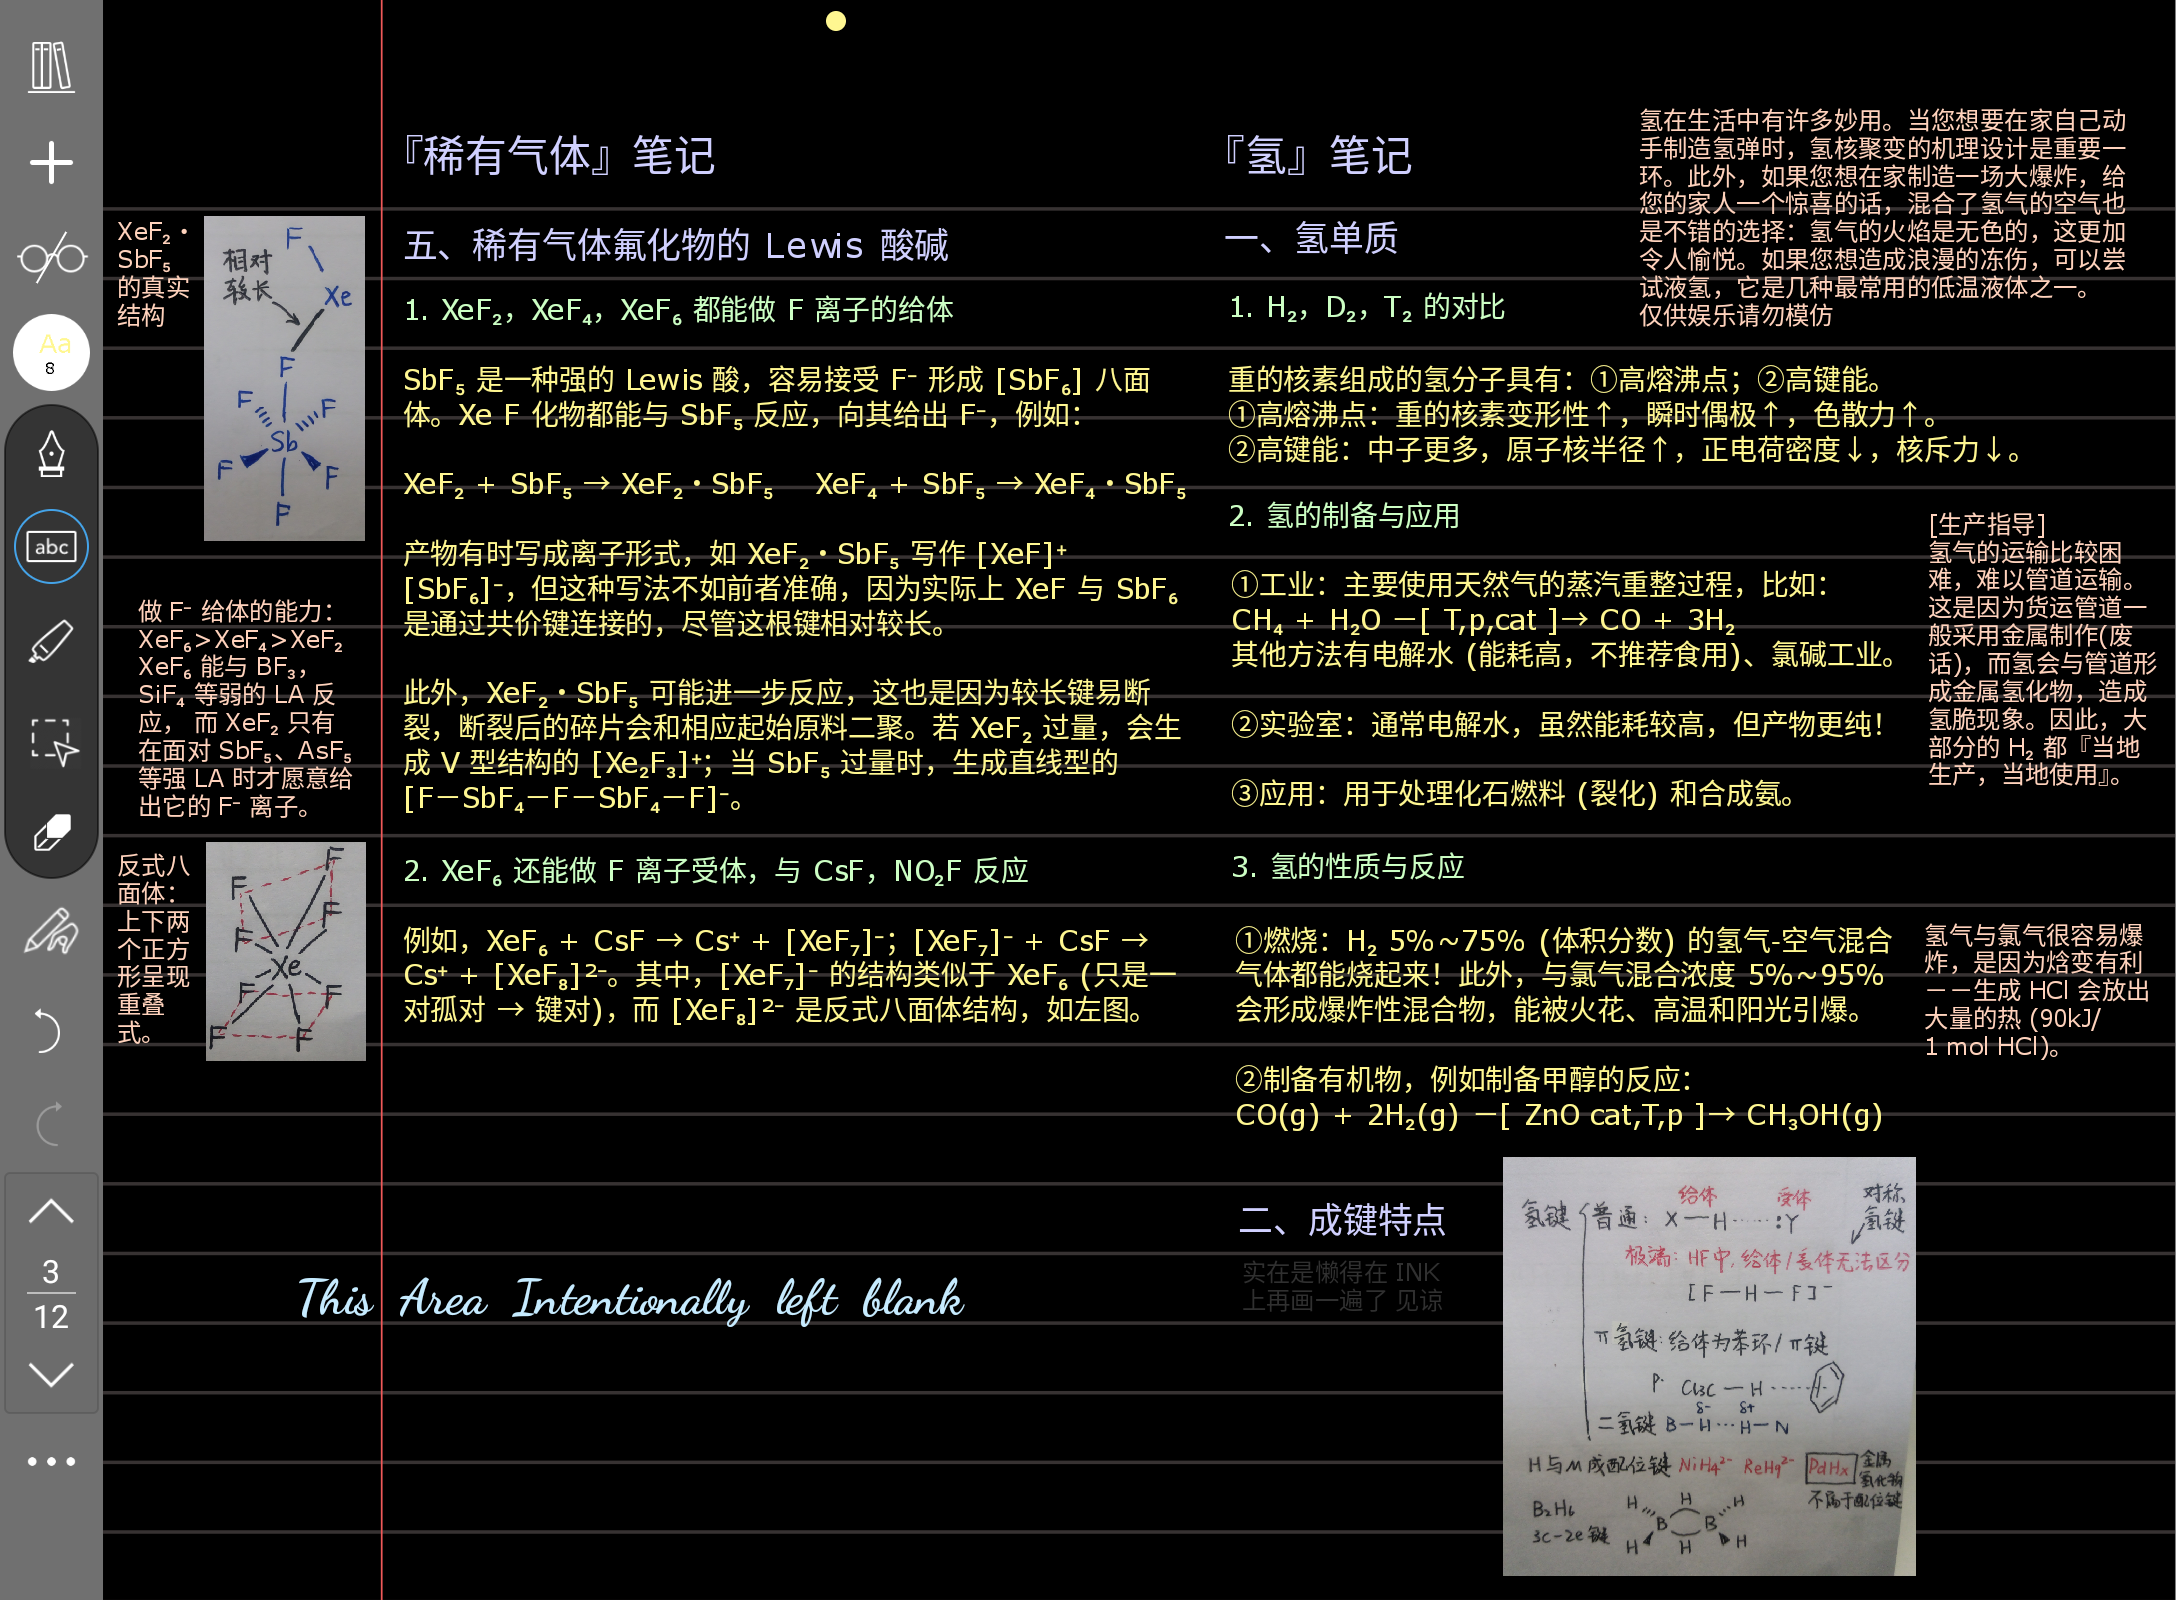 『稀有气体』笔记
五、稀有气体氟化物的 Lewis 酸碱
1. XeF₂，XeF₄，XeF₆ 都能做 F 离子的给体
SbF₅ 是一种强的 Lewis 酸，容易接受 F⁻ 形成 [SbF₆] 八面
体。Xe F 化物都能与 SbF₅ 反应，向其给出 F⁻，例如：
XeF₂ + SbF₅ → XeF₂·SbF₅ XeF₄ + SbF₅ → XeF₄·SbF₅
产物有时写成离子形式，如 XeF₂·SbF₅ 写作 [XeF]⁺
[SbF₆]⁻，但这种写法不如前者准确，因为实际上 XeF 与 SbF₆
是通过共价键连接的，尽管这根键相对较长。
此外，XeF₂·SbF₅ 可能进一步反应，这也是因为较长键易断
裂，断裂后的碎片会和相应起始原料二聚。若 XeF₂ 过量，会生
成 V 型结构的 [Xe₂F₃]⁺；当 SbF₅ 过量时，生成直线型的
[F－SbF₄－F－SbF₄－F]⁻。
2. XeF₆ 还能做 F 离子受体，与 CsF，NO₂F 反应
例如，XeF₆ + CsF → Cs⁺ + [XeF₇]⁻；[XeF₇]⁻ + CsF →
Cs⁺ + [XeF₈]²⁻。其中，[XeF₇]⁻ 的结构类似于 XeF₆ (只是一
对孤对 → 键对)，而 [XeF₈]²⁻ 是反式八面体结构，如左图。
This Area Intentionally left blank
XeF₂·
SbF₅
的真实
结构
F
相对
较长
Xe
F
F
F
Sb
F
F
F
做 F⁻ 给体的能力：
XeF₆>XeF₄>XeF₂
XeF₆ 能与 BF₃，
SiF₄ 等弱的 LA 反
应， 而 XeF₂ 只有
在面对 SbF₅、AsF₅
等强 LA 时才愿意给
出它的 F⁻ 离子。
反式八
面体：
上下两
个正方
形呈现
重叠
式。
F
F
F
F
Xe
F
F
F
F
『氢』笔记
一、氢单质
1. H₂，D₂，T₂ 的对比
重的核素组成的氢分子具有：①高熔沸点；②高键能。
①高熔沸点：重的核素变形性↑，瞬时偶极↑，色散力↑。
②高键能：中子更多，原子核半径↑，正电荷密度↓，核斥力↓。
2. 氢的制备与应用
①工业：主要使用天然气的蒸汽重整过程，比如：
CH₄ + H₂O －[ T,p,cat ]→ CO + 3H₂
其他方法有电解水 (能耗高，不推荐食用)、氯碱工业。
②实验室：通常电解水，虽然能耗较高，但产物更纯！
③应用：用于处理化石燃料 (裂化) 和合成氨。
3. 氢的性质与反应
①燃烧：H₂ 5%~75% (体积分数) 的氢气-空气混合
气体都能烧起来！此外，与氯气混合浓度 5%~95%
会形成爆炸性混合物，能被火花、高温和阳光引爆。
②制备有机物，例如制备甲醇的反应：
CO(g) + 2H₂(g) －[ ZnO cat,T,p ]→ CH₃OH(g)
二、成键特点
实在是懒得在 INK
上再画一遍了 见谅
氢在生活中有许多妙用。当您想要在家自己动
手制造氢弹时，氢核聚变的机理设计是重要一
环。此外，如果您想在家制造一场大爆炸，给
您的家人一个惊喜的话，混合了氢气的空气也
是不错的选择：氢气的火焰是无色的，这更加
令人愉悦。如果您想造成浪漫的冻伤，可以尝
试液氢，它是几种最常用的低温液体之一。
仅供娱乐请勿模仿
[生产指导]
氢气的运输比较困
难，难以管道运输。
这是因为货运管道一
般采用金属制作(废
话)，而氢会与管道形
成金属氢化物，造成
氢脆现象。因此，大
部分的 H₂ 都『当地
生产，当地使用』。
氢气与氯气很容易爆
炸，是因为焓变有利
－－生成 HCl 会放出
大量的热 (90kJ/
1 mol HCl)。
给体 受体 对称
氢键 普通：X－H……:Y 氢键
极端：HF中，给体/受体无法区分
[F－H－F]⁻
π氢键：给体为苯环/π键
Cl₃C－H……
δ- δ+
二氢键 B－H…H－N
H与M成配位键 NiH₄²⁻ ReH₉²⁻ PdHₓ 金属
氢化物
不属于配位键
B₂H₆
3c-2e键
H H H
B B
H H H
Aa
8
abc
3
12